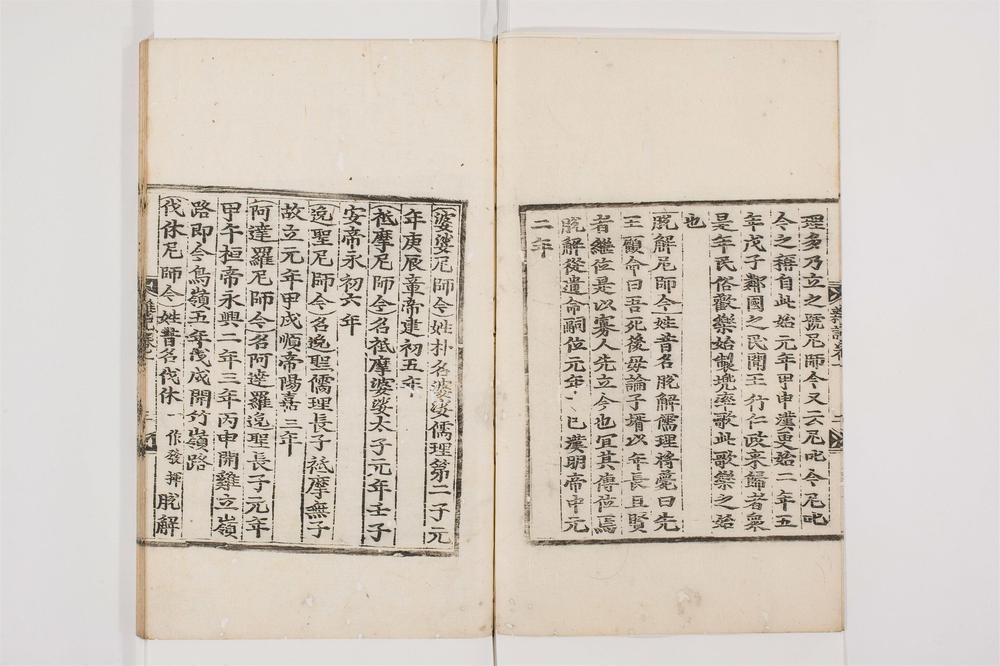 理多乃立之號尼師今又云尼叱今尼叱
今之稱自此始元年甲申漢更始二年五
年戊子鄰國之民聞王行仁政来歸者衆
是年民俗歡樂始製兠率歌此歌樂之始
也
脫解尼師今姓昔名脫解儒理將薨曰先
王顧命曰吾死後毋論子壻以年長且賢
者継位是以寡人先立今也宜其傳位焉
脫解從遺命嗣位元年丶巳漢明帝中元
二年
婆娑尼師今姓朴名婆娑儒理第二子元
年庚辰章帝建初五年
祗摩尼師今名祗摩婆娑太子元年壬子
安帝永初六年
逸聖尼師今名逸聖儒理長子祗摩無子
故立元年甲戌順帝陽嘉三年
阿達羅尼師今名阿達羅逸聖長子元年
甲午桓帝永興二年三年丙申開雞立嶺
路即今鳥嶺五年戊戌開竹嶺路
伐休尼師今姓昔名伐休一作發揮脫解